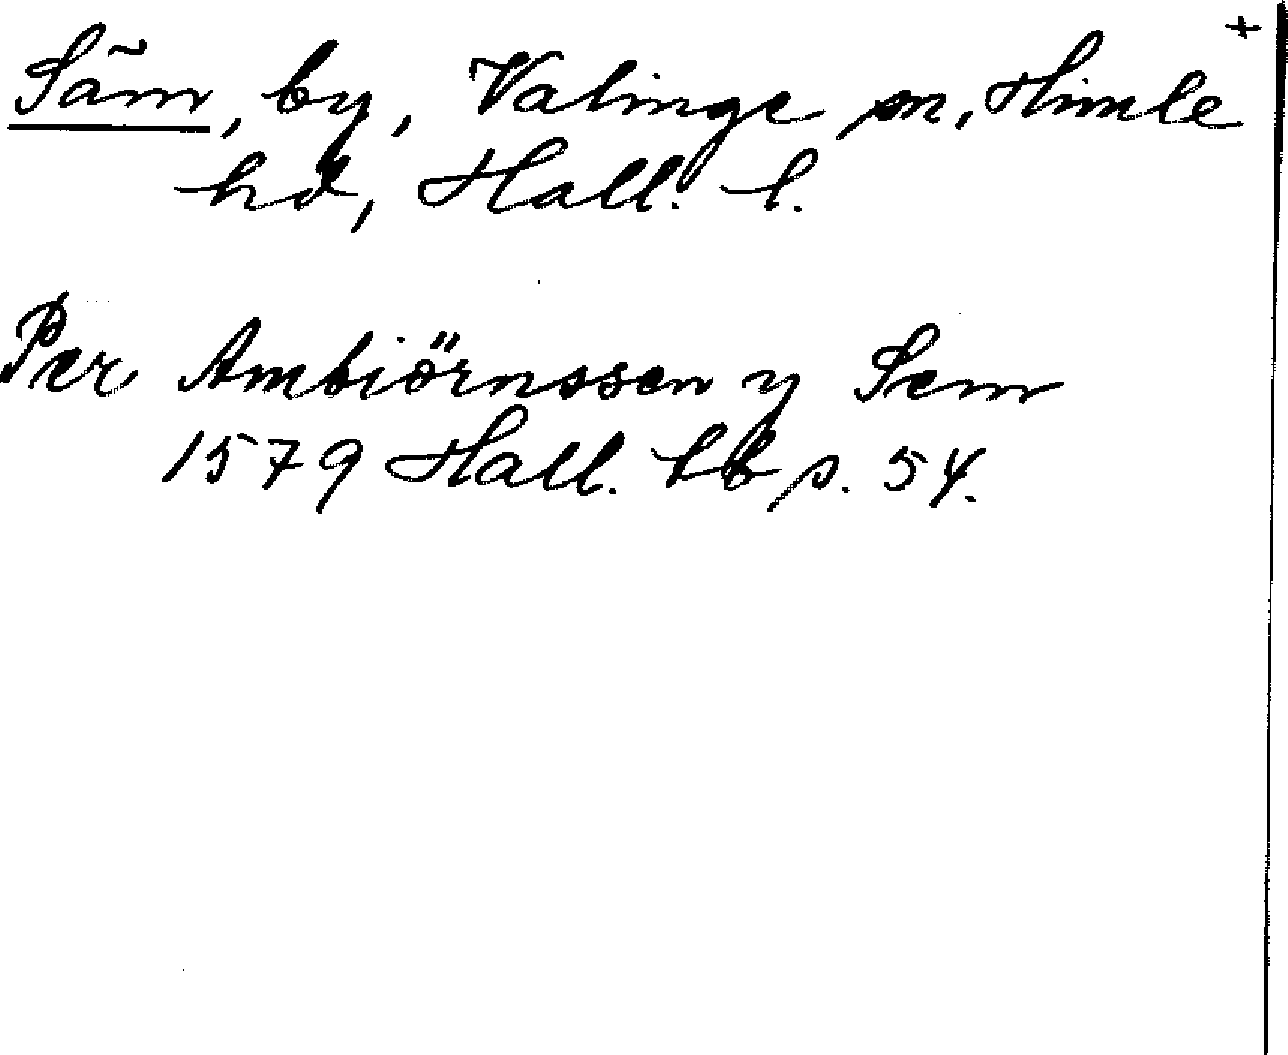 +
Säm, by, Valinge sn, Himle
hd, Hall. l.
Per Ambiörnssen y Sem
1579 Hall. lb s. 54.